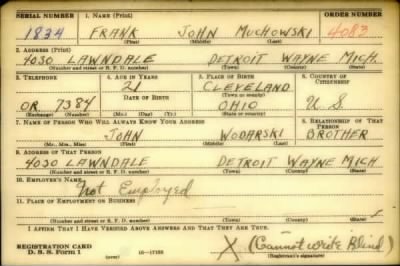 SERIAL NUMBER 1. NAME (Print) ORDER NUMBER
1834 FRANK JOHN MUCHOWSKI 4083
(First) (Middle) (Last)
2. ADDRESS (Print)
4030 LAWNDALE DETROIT WAYNE MICH.
(Number and street or R. F. D. number) (Town) (County) (State)
3. TELEPHONE 4. AGE IN YEARS 5. PLACE OF BIRTH 6. COUNTRY OF CITIZENSHIP
21 CLEVELAND
DATE OF BIRTH (Town or county)
OR 7384 OHIO U S
(Exchange) (Number) (Mo.) (Day) (Yr.) (State or country)
7. NAME OF PERSON WHO WILL ALWAYS KNOW YOUR ADDRESS 8. RELATIONSHIP OF THAT PERSON
JOHN WODARSKI BROTHER
(Mr., Mrs., Miss) (First) (Middle) (Last)
9. ADDRESS OF THAT PERSON
4030 LAWNDALE DETROIT WAYNE MICH
(Number and street or R. F. D. number) (Town) (County) (State)
10. EMPLOYER'S NAME
Not Employed
11. PLACE OF EMPLOYMENT OR BUSINESS
(Number and street or R. F. D. number) (Town) (County) (State)
I AFFIRM THAT I HAVE VERIFIED ABOVE ANSWERS AND THAT THEY ARE TRUE.
REGISTRATION CARD
D. S. S. Form 1 X (Cannot write Blind)
(over) 16—17105 (Registrant's signature)